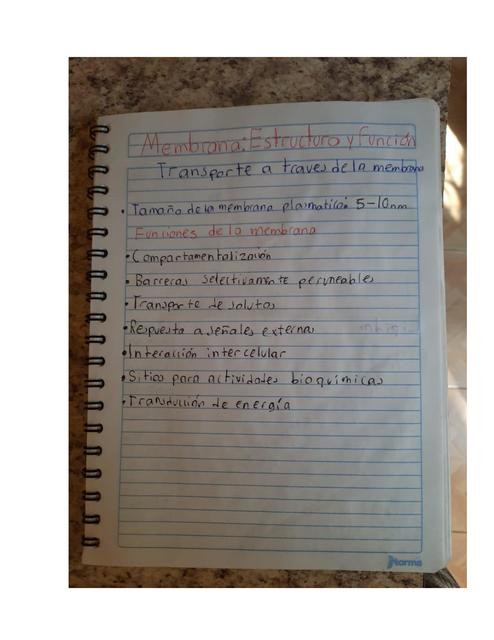 Membrana: Estructura y función
Transporte a traves de la membrana
• Tamaño de la membrana plasmatica: 5-10nm
Funciones de la membrana
• Compartamentalización
• Barreras selectivamente permeables
• Transporte de solutos
• Respuesta a señales externas
• Interacción intercelular
• Sitios para actividades bioquimicas
• Transducción de energía
Norma